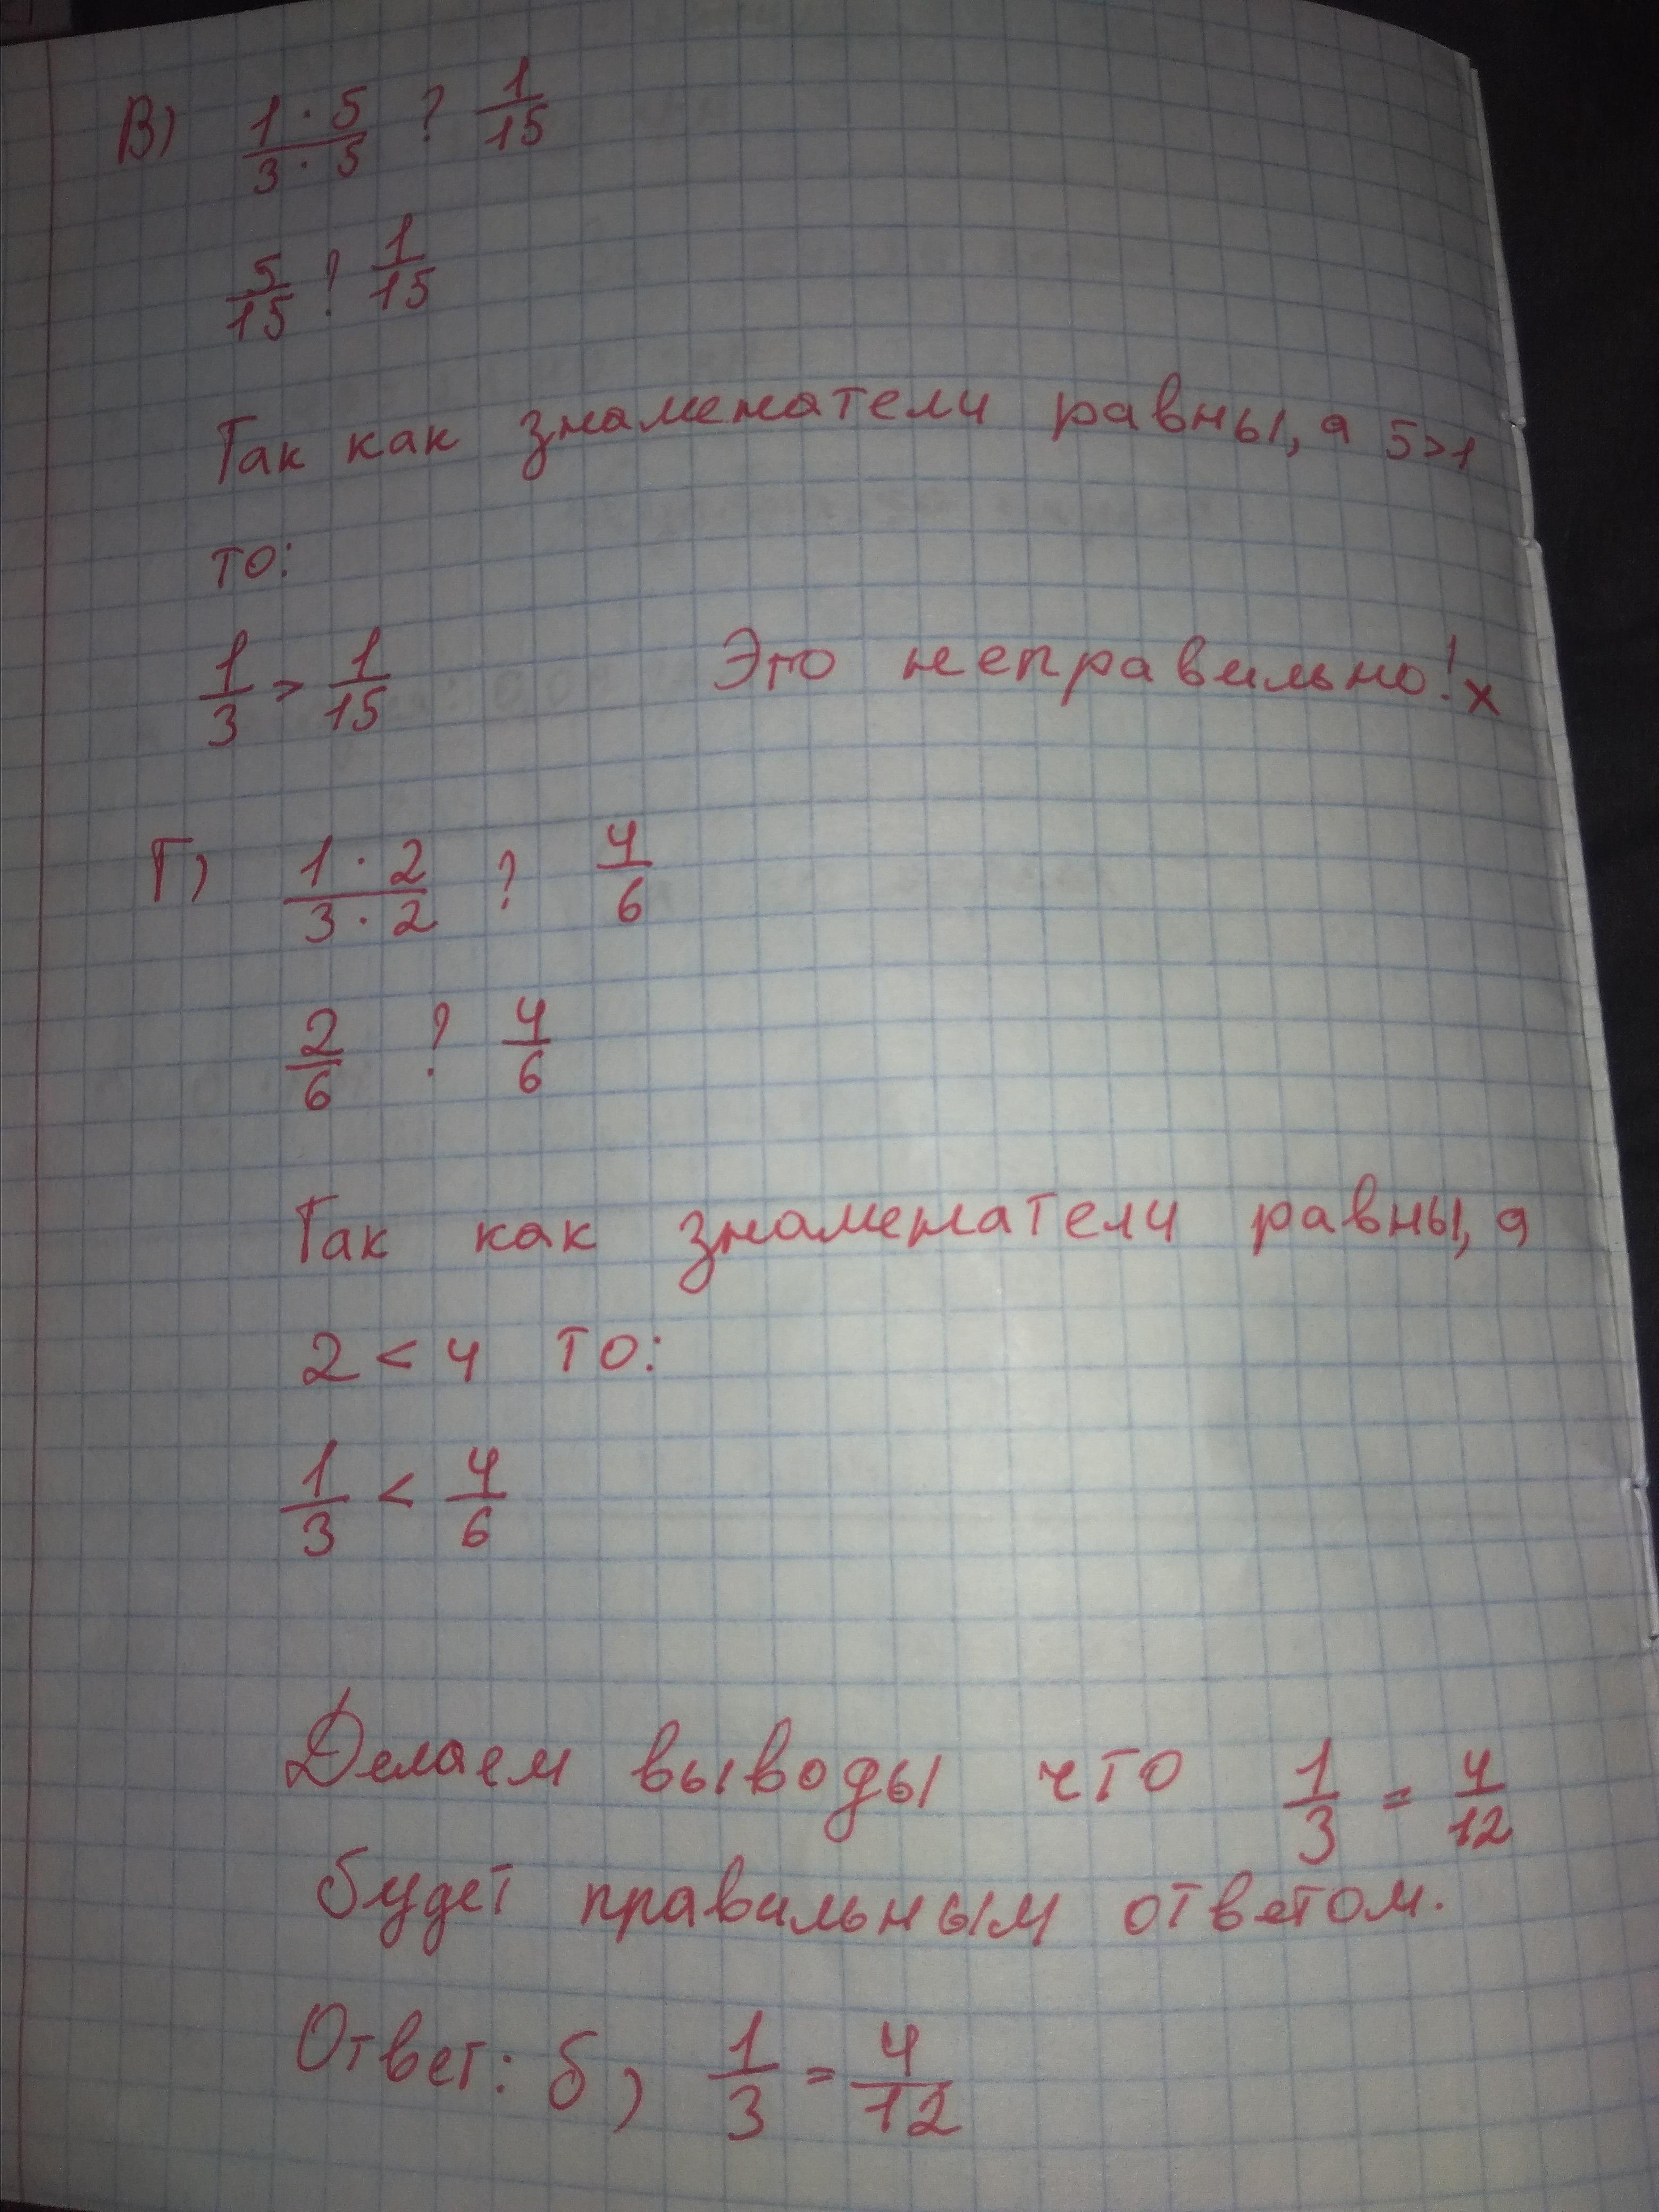 В) 1 · 5 / 3 · 5 ? 1/15
5/15 ? 1/15
Так как знаменатели равны, а 5>1
то:
1/3 > 1/15 Это неправильно! x
Г) 1 · 2 / 3 · 2 ? 4/6
2/6 ? 4/6
Так как знаменатели равны, а
2 < 4 то:
1/3 < 4/6
Делаем выводы что 1/3 = 4/12
будет правильным ответом.
Ответ: б) 1/3 = 4/12